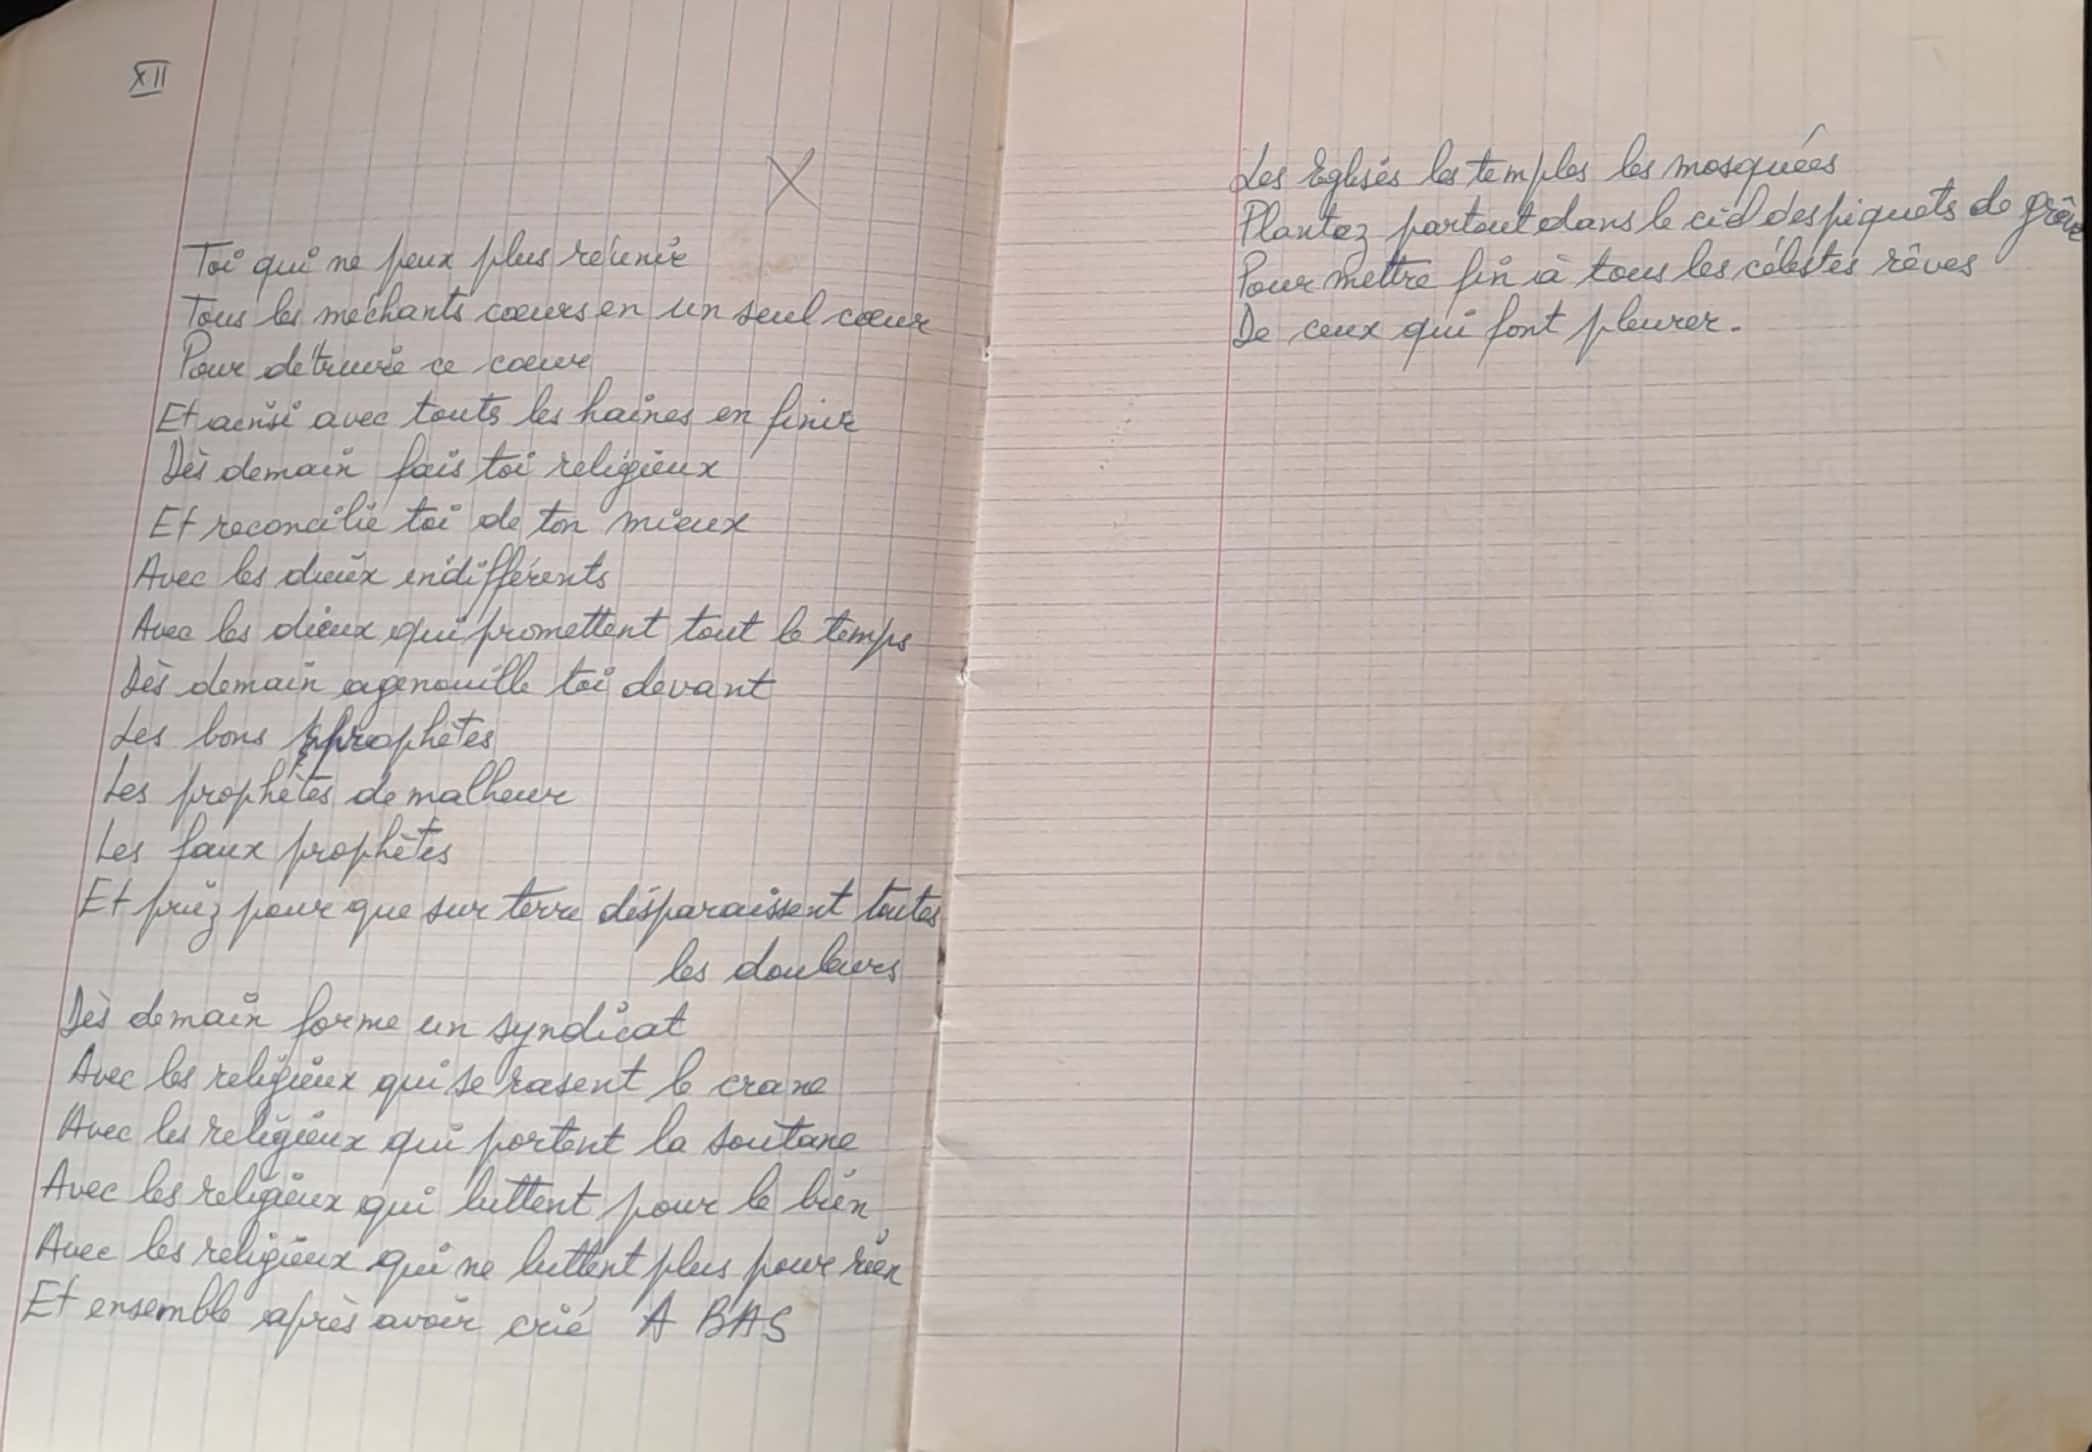 XII
X
Toi qui ne peux plus réunir
Tous les méchants cœurs en un seul cœur
Pour détruire ce cœur
Et ainsi avec touts les haines en finir
Dès demain fais toi religieux
Et reconcilie toi de ton mieux
Avec les dieux indifférents
Avec les dieux qui promettent tout le temps
Dès demain agenouille toi devant
Les bons prophètes
Les prophètes de malheur
Les faux prophètes
Et priez pour que sur terre disparaissent toutes
les douleurs
Dès demain forme un syndicat
Avec les religieux qui se rasent le crane
Avec les religieux qui portent la soutane
Avec les religieux qui luttent pour le bien
Avec les religieux qui ne luttent plus pour rien
Et ensemble après avoir crié A BAS
Les Eglises les temples les mosquées
Plantez partout dans le ciel des piquets de grève
Pour mettre fin à tous les célestes rêves
De ceux qui font pleurer.